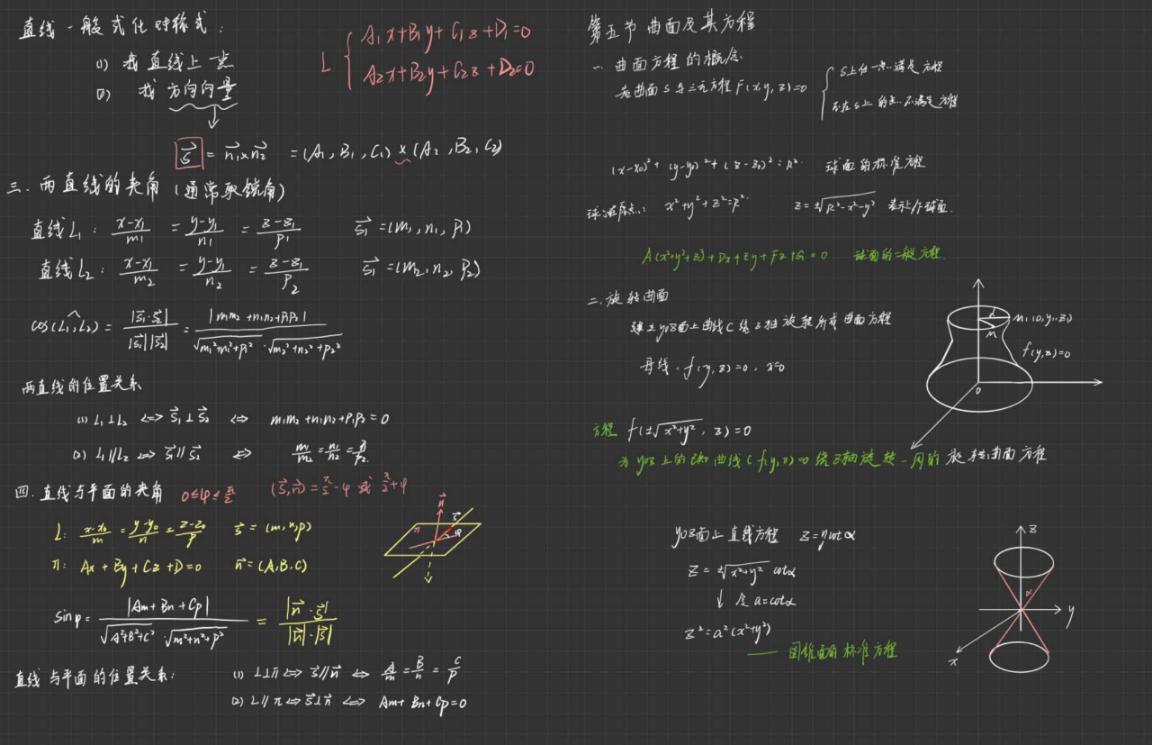 直线一般式化对称式：
(1) 找直线上一点
(2) 找方向向量
L { A₁x+B₁y+C₁z+D₁=0
A₂x+B₂y+C₂z+D₂=0
s⃗ = n⃗₁×n⃗₂ =(A₁,B₁,C₁)×(A₂,B₂,C₂)
三. 两直线的夹角（通常取锐角）
直线L₁: (x-x₁)/m₁ = (y-y₁)/n₁ = (z-z₁)/p₁ s⃗₁=(m₁,n₁,p₁)
直线L₂: (x-x₁)/m₂ = (y-y₁)/n₂ = (z-z₁)/p₂ s⃗₁=(m₂,n₂,p₂)
cos(L₁,^L₂) = |s⃗₁·s⃗₂| / |s⃗₁||s⃗₂| = |m₁m₂+n₁n₂+p₁p₂| / √(m₁²+n₁²+p₁²)·√(m₂²+n₂²+p₂²)
两直线的位置关系
(1) L₁⊥L₂ ⇔ s⃗₁⊥s⃗₂ ⇔ m₁m₂+n₁n₂+p₁p₂=0
(2) L₁∥L₂ ⇔ s⃗₁∥s⃗₂ ⇔ m₁/m₂ = n₁/n₂ = p₁/p₂
四. 直线与平面的夹角 0≤φ≤π/2 (s⃗,n⃗)=π/2-φ 或 π/2+φ
L: (x-x₀)/m = (y-y₀)/n = (z-z₀)/p s⃗=(m,n,p)
π: Ax+By+Cz+D=0 n⃗=(A,B,C)
n⃗ s⃗ π φ
sinφ = |Am+Bn+Cp| / √(A²+B²+C²)·√(m²+n²+p²) = |n⃗·s⃗| / |n⃗|·|s⃗|
直线与平面的位置关系: (1) L⊥π ⇔ s⃗∥n⃗ ⇔ A/m = B/n = C/p
(2) L∥π ⇔ s⃗⊥n⃗ ⇔ Am+Bn+Cp=0
第五节 曲面及其方程
一. 曲面方程的概念
若曲面S与三元方程F(x,y,z)=0 { S上任一点满足方程
不在S上的点不满足方程
(x-x₀)²+(y-y₀)²+(z-z₀)²=R² 球面的标准方程
球心在原点: x²+y²+z²=R² z=±√(R²-x²-y²) 表示上下球面.
A(x²+y²+z²)+Dx+Ey+Fz+G=0 球面的一般方程.
二. 旋转曲面
建立yOz面上曲线C绕z轴旋转所成曲面方程
母线: f(y,z)=0, x=0
M₁(0,y₁,z₁)
M
f(y,z)=0
0
方程 f(±√(x²+y²), z)=0
为yOz上的已知曲线C f(y,z)=0绕z轴旋转一周的旋转曲面方程
yOz面上直线方程 z=ycotα
z=±√(x²+y²) cotα
↓ 令a=cotα
z²=a²(x²+y²)
—— 圆锥面的标准方程
z
α
y
x